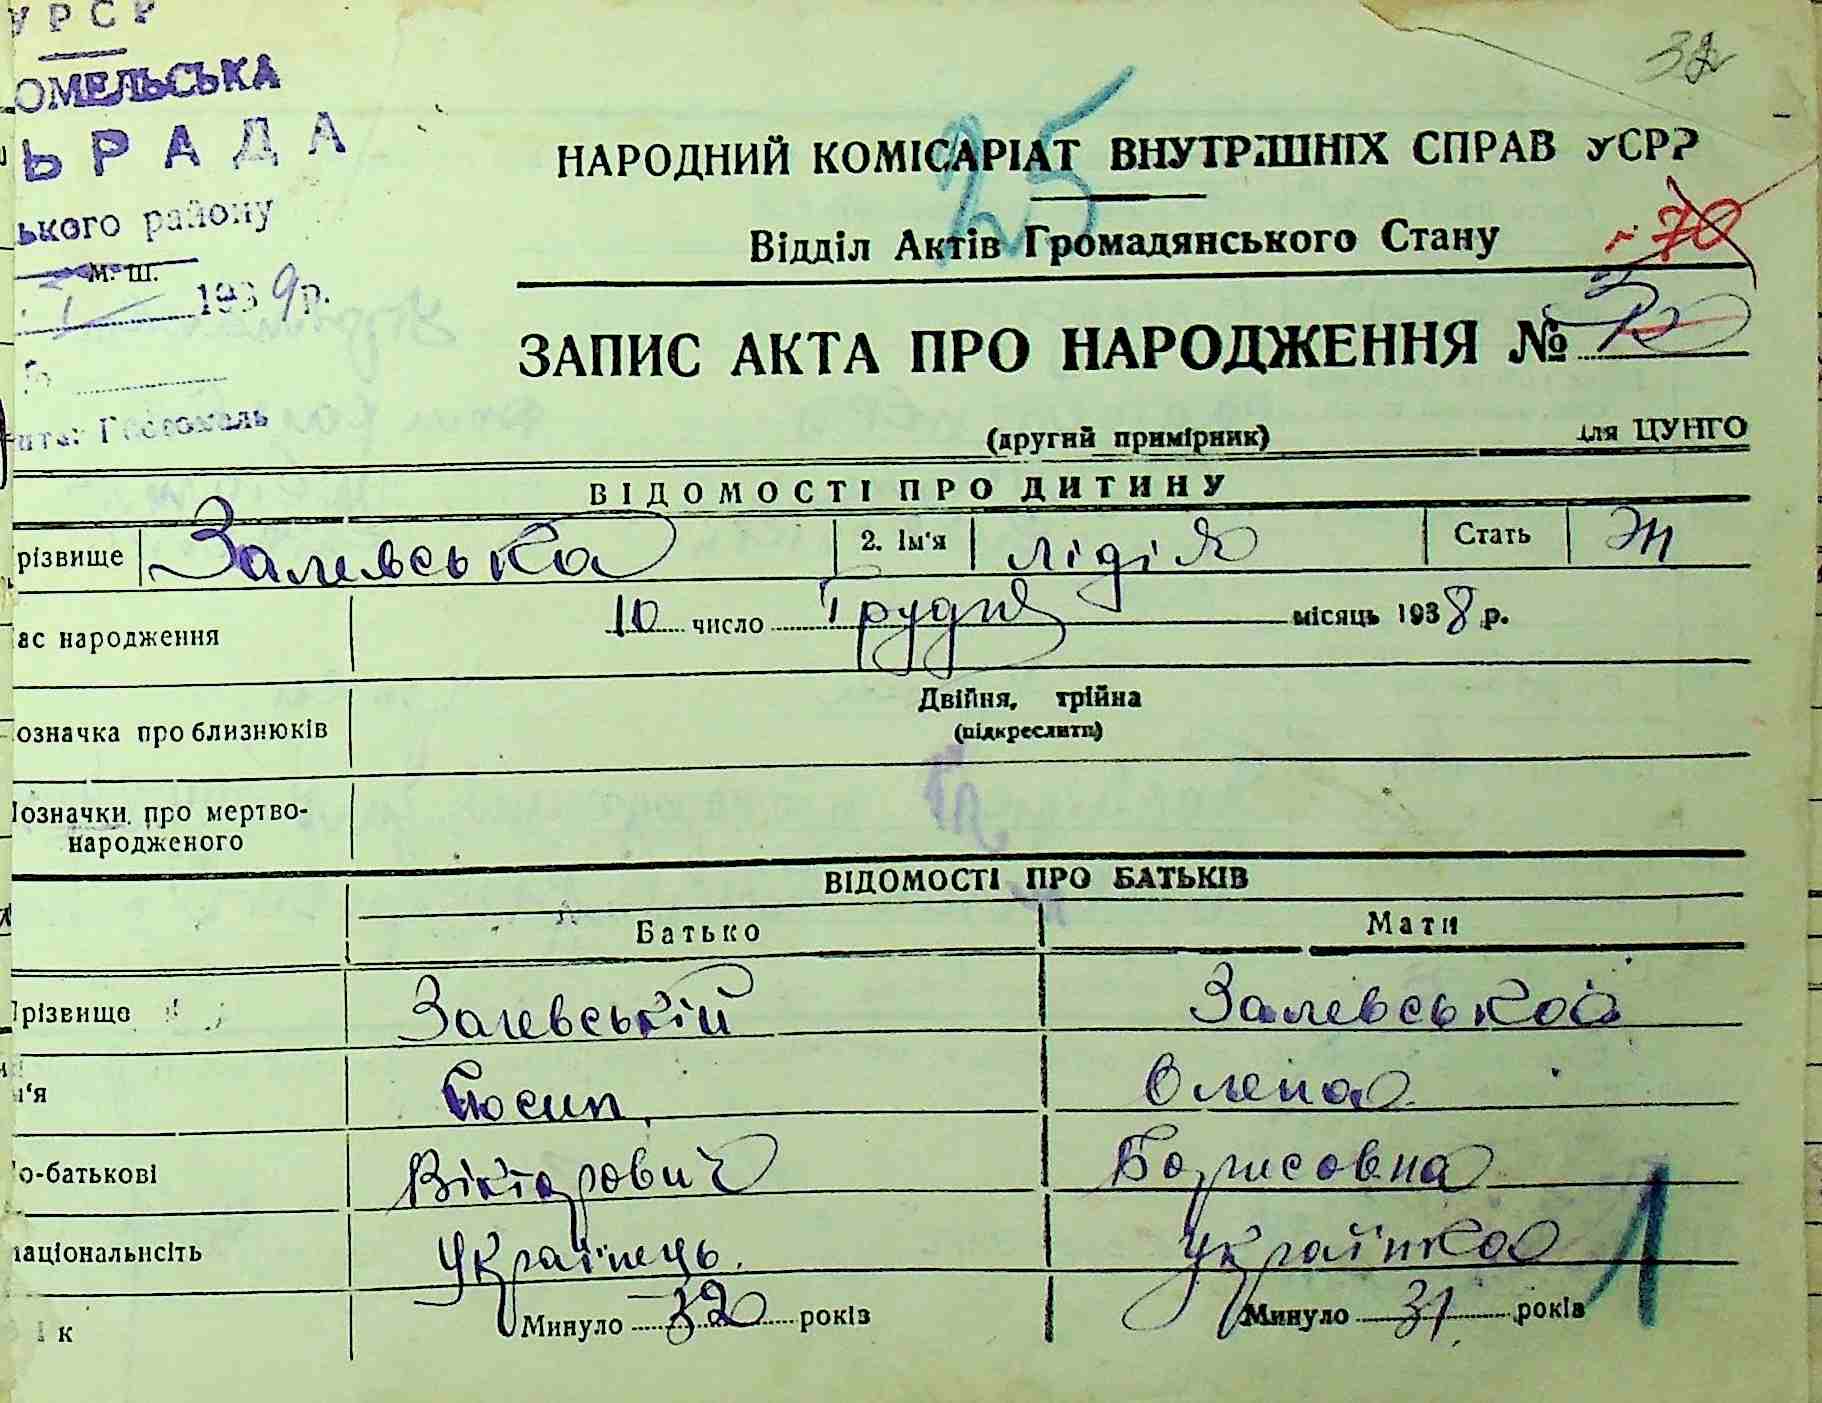 УРСР
ОМЕЛЬСЬКА
ЬРАДА
ького району
М. Ш.
1939 р.
Гостомель
32
25
НАРОДНИЙ КОМІСАРІАТ ВНУТРІШНІХ СПРАВ УСРР
Відділ Актів Громадянського Стану
70
ЗАПИС АКТА ПРО НАРОДЖЕННЯ №
(другий примірник)
для ЦУНГО
ВІДОМОСТІ ПРО ДИТИНУ
різвище Залевська 2. Ім'я Лідія Стать Ж
ас народження 10 число Грудня місяць 1938 р.
означка про близнюків Двійня, трійна
(підкреслити)
означки про мертво-
народженого
ВІДОМОСТІ ПРО БАТЬКІВ
Батько Мати
різвище Залевській Залевськоа
'я Йосип Олена
о-батькові Вікторович Борисовна
аціональність Українець Українка
к Минуло 32 років Минуло 31 років
1